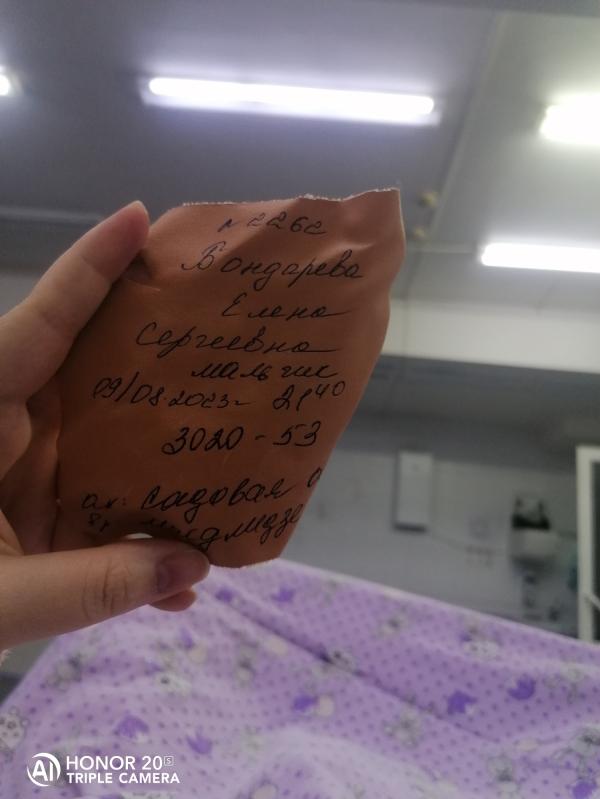 №2262
Бондарева
Елена
Сергеевна
мальчик
09/08.2023г 21⁴⁰
3020-53
ак: садовая
HONOR 20S
TRIPLE CAMERA